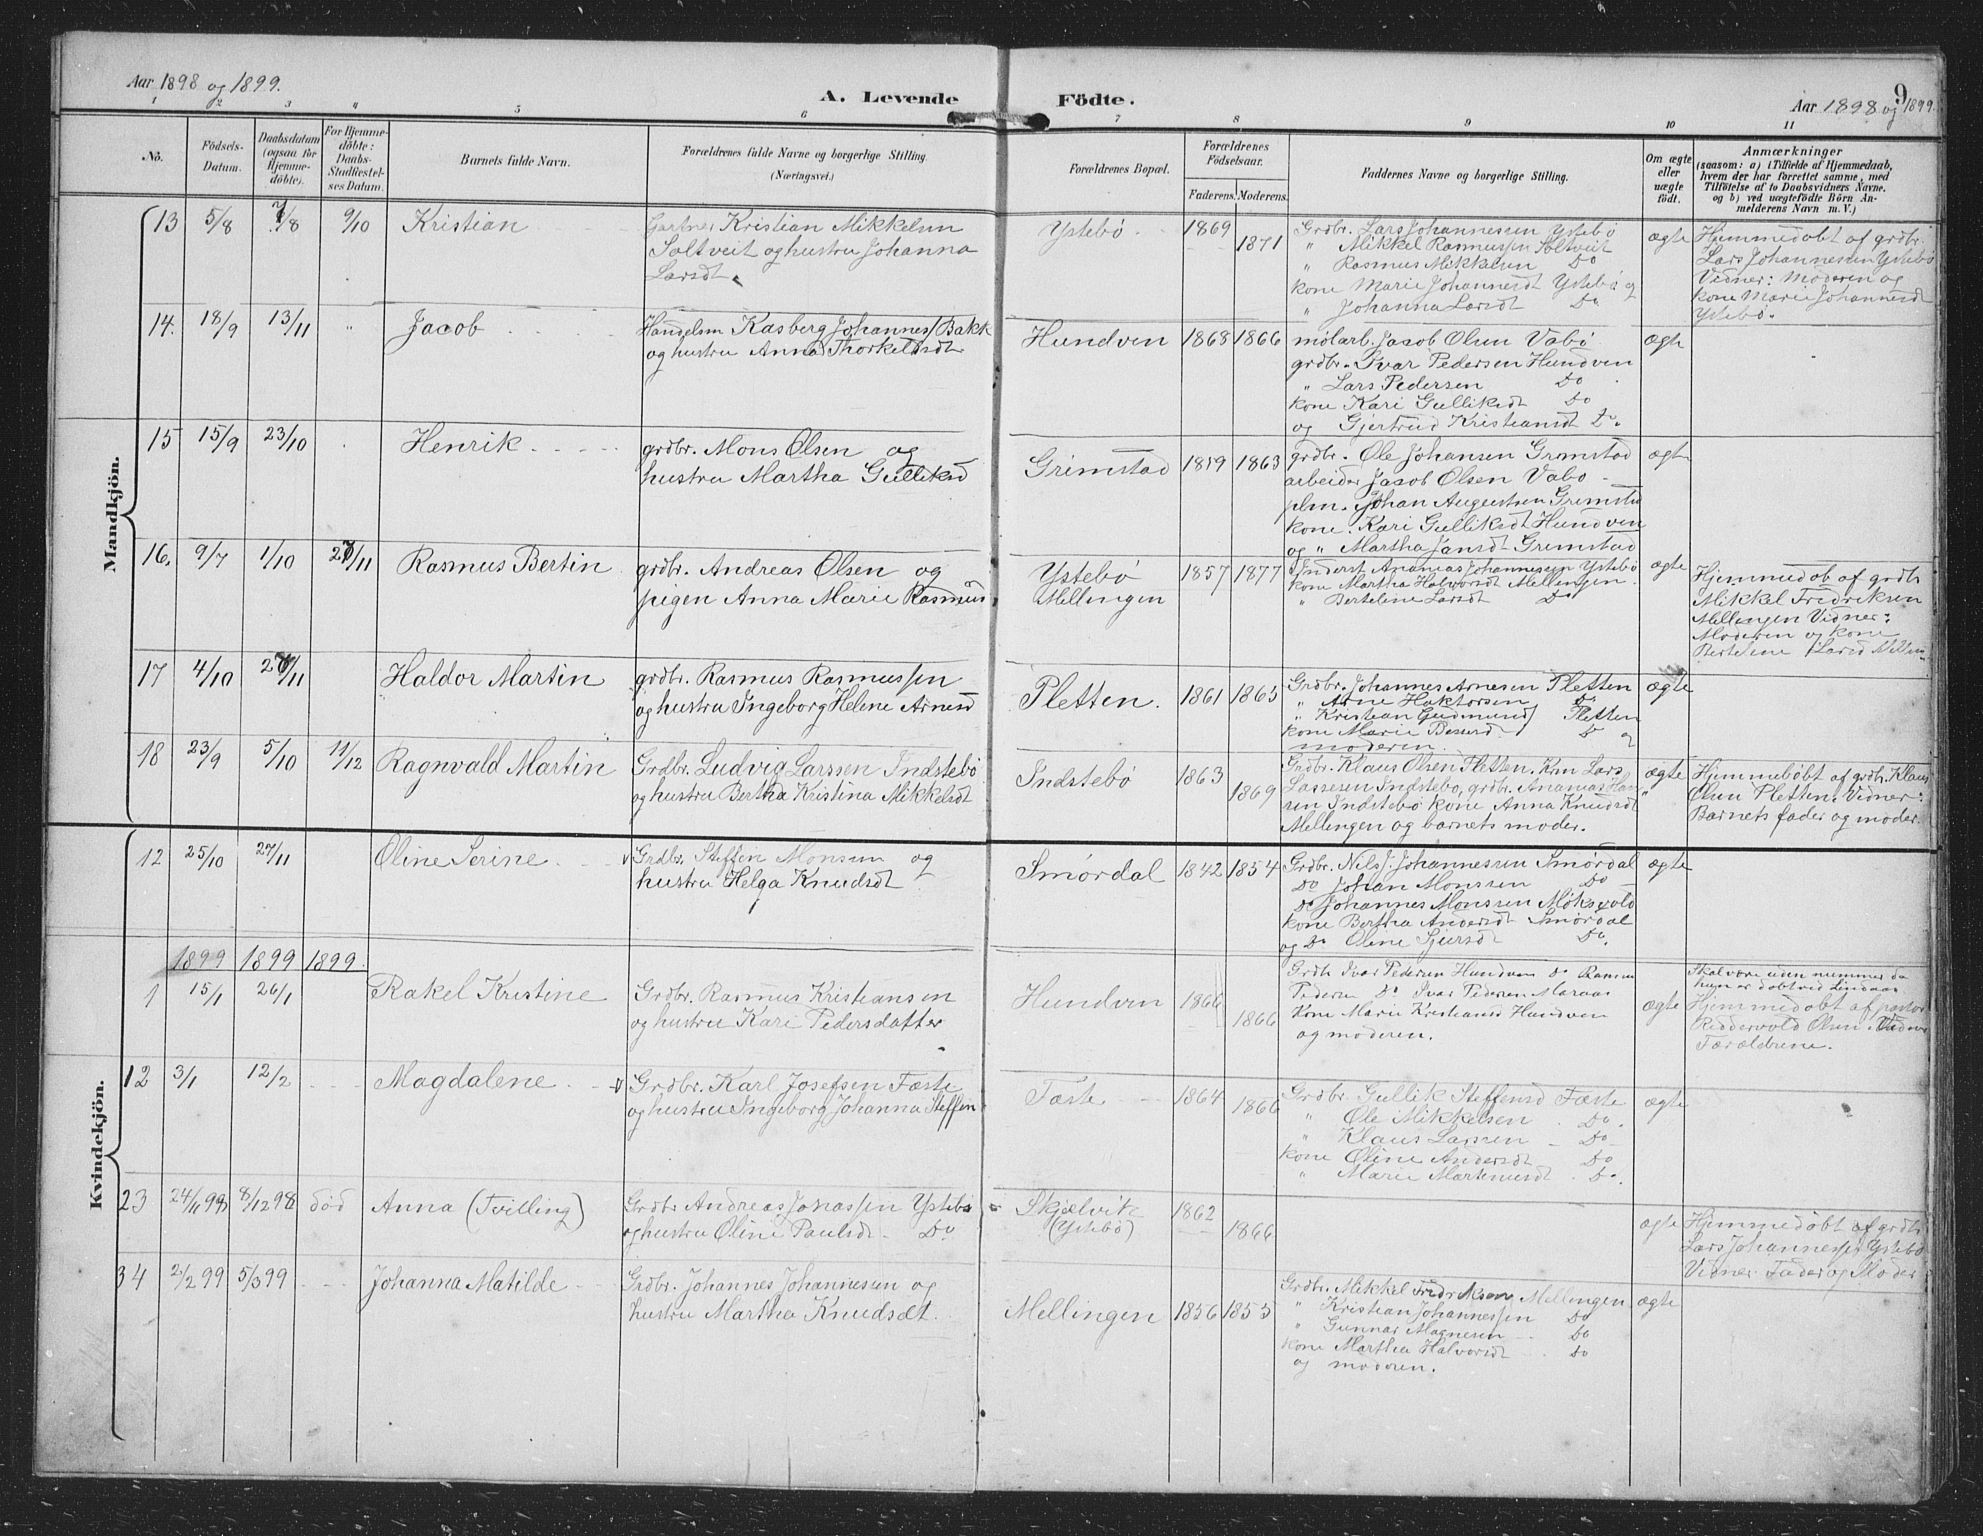 Aar 1898 og 1899.
A. Levende Födte.
9
Aar 1898 og 1899.
1 2 3 " 5 6 7 8 9 10 11
No.
Födsels-
Datum.
Daabsdatum
(ogsaa for
Hjemme-
döbte).
For Hjemme-
döbte:
Daabs-
Stadfæstel-
ses Datum.
Barnets fulde Navn.
Forældrenes fulde Navne og borgerlige Stilling
(Næringsvei.)
Forældrenes Bopæl.
Forældrenes
Födselsaar.
Faderens. Moderens.
Faddernes Navne og borgerlige Stilling.
Om ægte
eller
uægte
födt.
Anmærkninger
(saasom: a) i Tilfælde af Hjemmedaab,
hvem der har forrettet samme, med
Tilföielse af to Daabsvidners Navne.
og b) ved uægtefödte Börn An-
melderens Navn m. V.)
Mandkjön.
13 5/8 7/8 9/10 Kristian
Gartner Kristian Mikkelsen
Saltveit og hustru Johanna
Larsdt.
Ystebö 1869 1871
Grdbr. Lars Johannessen Ystebö
" Mikkel Rasmussen Soltveit
" Rasmus Mikkelsen Do
kone Marie Johannesdt Ystebö og
" Johanna Larsdt Do
ægte
Hjemmedöbt af grdbr.
Lars Johannesen Ystebö
Vidner: Moderen og
kone Marie Johannesdt
Ystebö.
14. 18/9 13/11 " Jacob
Handelsm Kasberg Johannes/Bakk
og hustru Anna Thorkeldsdt
Hundven 1868 1866
mölarb. Jacob Olsen Vabö
grdbr. Ivar Pedersen Hundven
" Lars Pedersen Do
kone Kari Gulliksdt Do
og Gjertrud Kristiansdt Do.
ægte
15 15/9 23/10 Henrik
grdbr. Mons Olsen og
hustru Martha Gulliksd
Grimstad 1859 1863
grdbr. Ole Johansen Grimstad
arbeider Jacob Olsen Vabo
plm. Johan Augustsen Grimstad
kone. Kari Gulliksdt Hundven
og " Martha Jansdt Grimstad
ægte
16. 9/7 1/10 27/11 Rasmus Bertin
grdbr. Andreas Olsen og
pigen Anna Marie Rasmus
Ystebö
Mellingen
1857 1877
Inderst Ananias Johannesen Ystebö
kone Martha Halvorsdt Mellingen
" Berteline Larsdt Do
ægte
Hjemmedöb af grdb
Mikkel Fredriksen
Mellingen Vidner:
Moderen og kone
Berteline Larsd Mellin
17 4/10 27/11 Haldor Martin
grdbr. Rasmus Rasmussen
og hustru Ingeborg Helene Arnesd
Pletten. 1861 1865
Grdbr. Johannes Arnesen Pletten
" Arne Haktorsen Do
" Kristian Gudmunds/ Pletten
kone Marie Do og
moderen.
ægte
18 23/9 5/10 11/12 Ragnvald Martin
Grdbr. Ludvig Larssen Indstebö
og hustru Bertha Kristina Mikkelsdt
Indstebö 1863 1869
Grdbr. Klaus Olsen Pletten. Lars
Lassesen Indstebo, grdbr. Ananias Han
sen Indstebö kone Anna Knudsdt
Mellingen og barnets moder.
ægte
Hjemmeböbt af grdb. Klaus
Olsen Pletten. Vidner:
Barnets fader og moder.
Kvindekjön.
12 25/10 27/11 Oline Serine
Grdbr. Steffen Monsen og
hustru Helga Knudsdt
Smördal 1842 1854
Grdbr. Nils J. Johannessen Smördal
Do Johan Monssen Do
Do Johannes Monssen Möksvold
kone Bertha Andersdt Smördal
og Do Oline Sjursdt Do.
ægte
1899 1899 1899.
1 15/1 26/1 Rakel Kristine
Grdbr. Rasmus Kristiansen
og hustru Kari Pedersdatter
Hundven 1866 1866
Grdb Ivar Pedersen Hundven do Rasmus
Pedersen do Ivar Pedersen Maraas
kone Marie Kristiansd Hundven
og moderen.
ægte
Skal være uden nummer da
hun er döbt ved Lindaas
Hjemmedöbt af pastor
Riddervold Olsen. Vidner
Forældrene.
12 3/1 12/2 Magdalene
Grdbr. Karl Josefsen Fæste
og hustru Ingeborg Johanna Steffen
Fæste 1864 1866
Grdbr. Gullik Steffensd Fæste
" Ole Mikkelsen Do.
" Klaus Larsen Do
kone Oline Andersdt Do
" Marie Martinusdt Do.
ægte
23 24/11 98 8/12 98 död Anna (Tvilling)
Grdbr. Andreas Jonassen Ystebö
og hustru Oline Paulsdt Do
Skjælvik
(Ystebö)
1862 1866
ægte
Hjemmedöbt af grdb
Lars Johannessen Ystebö
Vidner Fader og Moder
34 2/2 99 5/3 99 Johanna Matilde
Grdbr. Johannes Johannesen og
hustru Martha Knudsdt.
Mellingen 1856 1855
Grdbr. Mikkel Fredriksen Mellingen
" Kristian Johannessen Do
" Gunnar Magnesen Do
kone Martha Halvorsdt Do
og moderen.
ægte